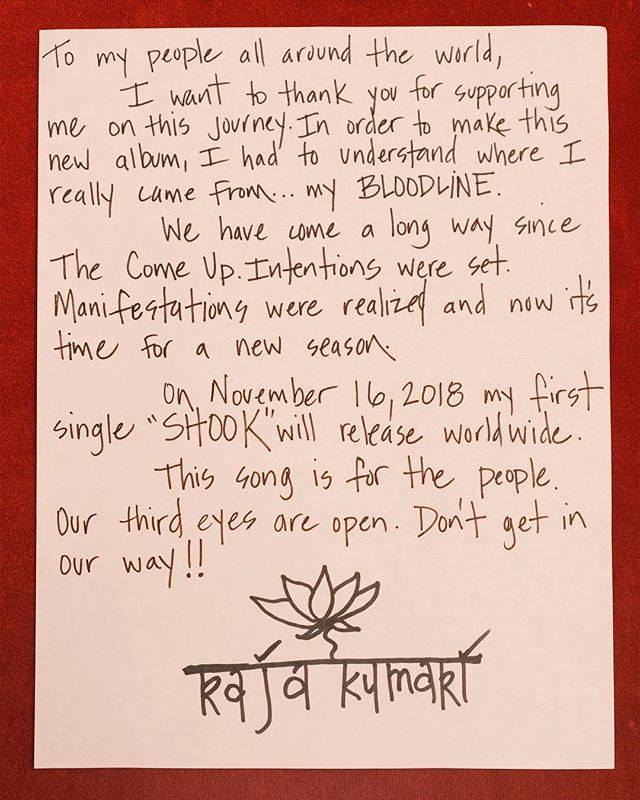 To my people all around the world,
I want to thank you for supporting
me on this journey. In order to make this
new album, I had to understand where I
really came from... my BLOODLINE.
We have come a long way since
The Come Up. Intentions were set.
Manifestations were realized and now it's
time for a new season.
On November 16, 2018 my first
single "SHOOK" will release worldwide.
This song is for the people.
Our third eyes are open. Don't get in
our way!!
raja kumari